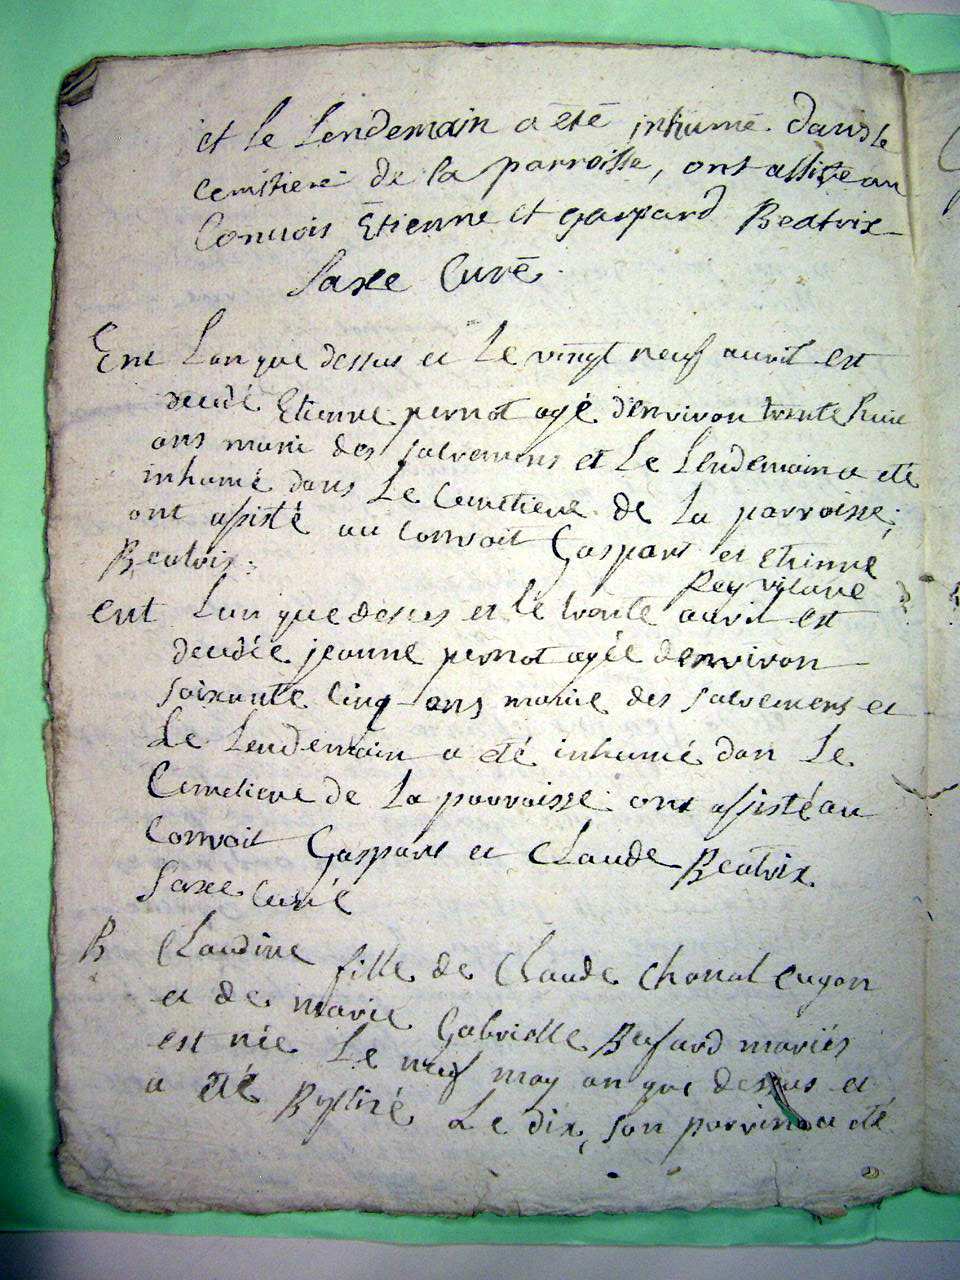 et le Lendemain a été inhumé dans le
cemitiere de la parroisse, ont assisté au
Convois Etienne et gaspard Beatrix
Saxe Curé
Ent Lan que dessus et Le vingt neuf auril est
decedé Etienne pernot agé denviron trente huit
ans marié des salremens et Le Lendemain a eté
inhumé dans Le Cemetiere de La parroisse;
ont assisté au convoit Gaspart et Etienne
Beatrix.
Rey vicaire
ent Lan que desus et le trente auril est
decedée jeanne pernot agée denviron
soixante cinq ans mariée des salremens et
Le Lendemain a eté inhumé dan Le
Cemetiere de La parroisse ont assisté au
Convoit Gaspart et Claude Beatrix
Saxe curé
B Claudine fille de Claude Chonal
et de marie Gabrielle mariés
est née Le neuf may an que dessus et
a eté Le dix, son parrin a eté